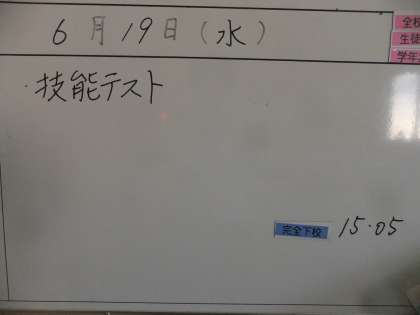 6月19日(水)
全校
生徒
学年
・技能テスト
完全下校 15.05